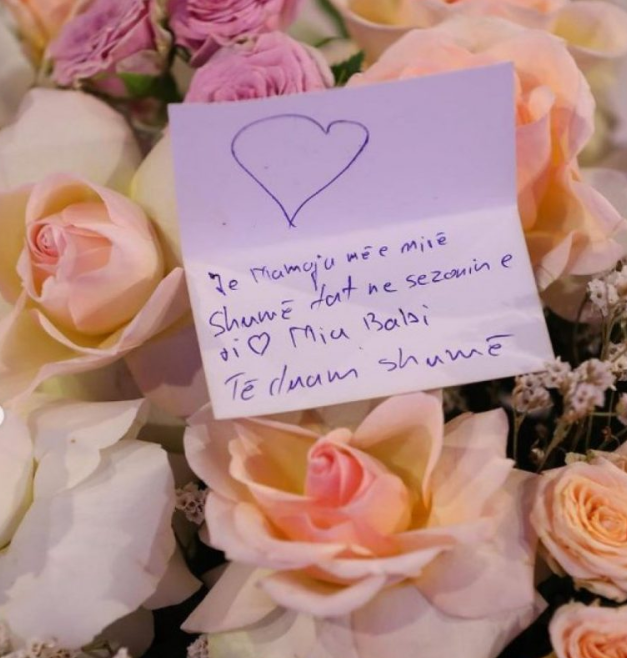 Je Mamaja më e mirë
Shumë fat ne sezonin e
ri ♡ Mia Babi
Të duam shumë